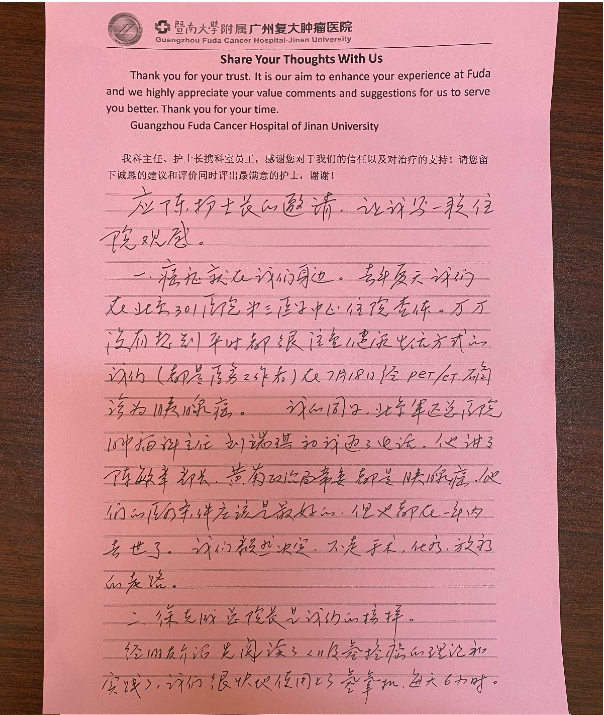 暨南大学附属广州复大肿瘤医院
Guangzhou Fuda Cancer Hospital·Jinan University
Share Your Thoughts With Us
Thank you for your trust. It is our aim to enhance your experience at Fuda
and we highly appreciate your value comments and suggestions for us to serve
you better. Thank you for your time.
Guangzhou Fuda Cancer Hospital of Jinan University
我科主任、护士长携科室员工，感谢您对于我们的信任以及对治疗的支持！请您留
下诚恳的建议和评价同时评出最满意的护士，谢谢！
应陈护士长的邀请，让我写一段住
院观感。
一、癌症就在我们身边。去年夏天我们
在北京301医院第三医学中心住院查体。万万
没有想到平时都很注重健康生活方式的
我们（都是医务工作者）在7月18日经PET/CT确
诊为胰腺癌。 我的同事，北京军区总医院
肿瘤科主任刘瑞琪和我通了电话，他讲了
陈敏章部长，黄菊政治局常委都是胰腺癌，他
们的医疗条件应该是最好的，但也都在一年内
去世了。我们毅然决定，不走手术，化疗，放疗
的老路。
二、徐克成总院长是我们的榜样。
经朋友介绍先阅读了《氢气控癌的理论和
实践》，我们很快地使用上了氢氧机，每天6小时。